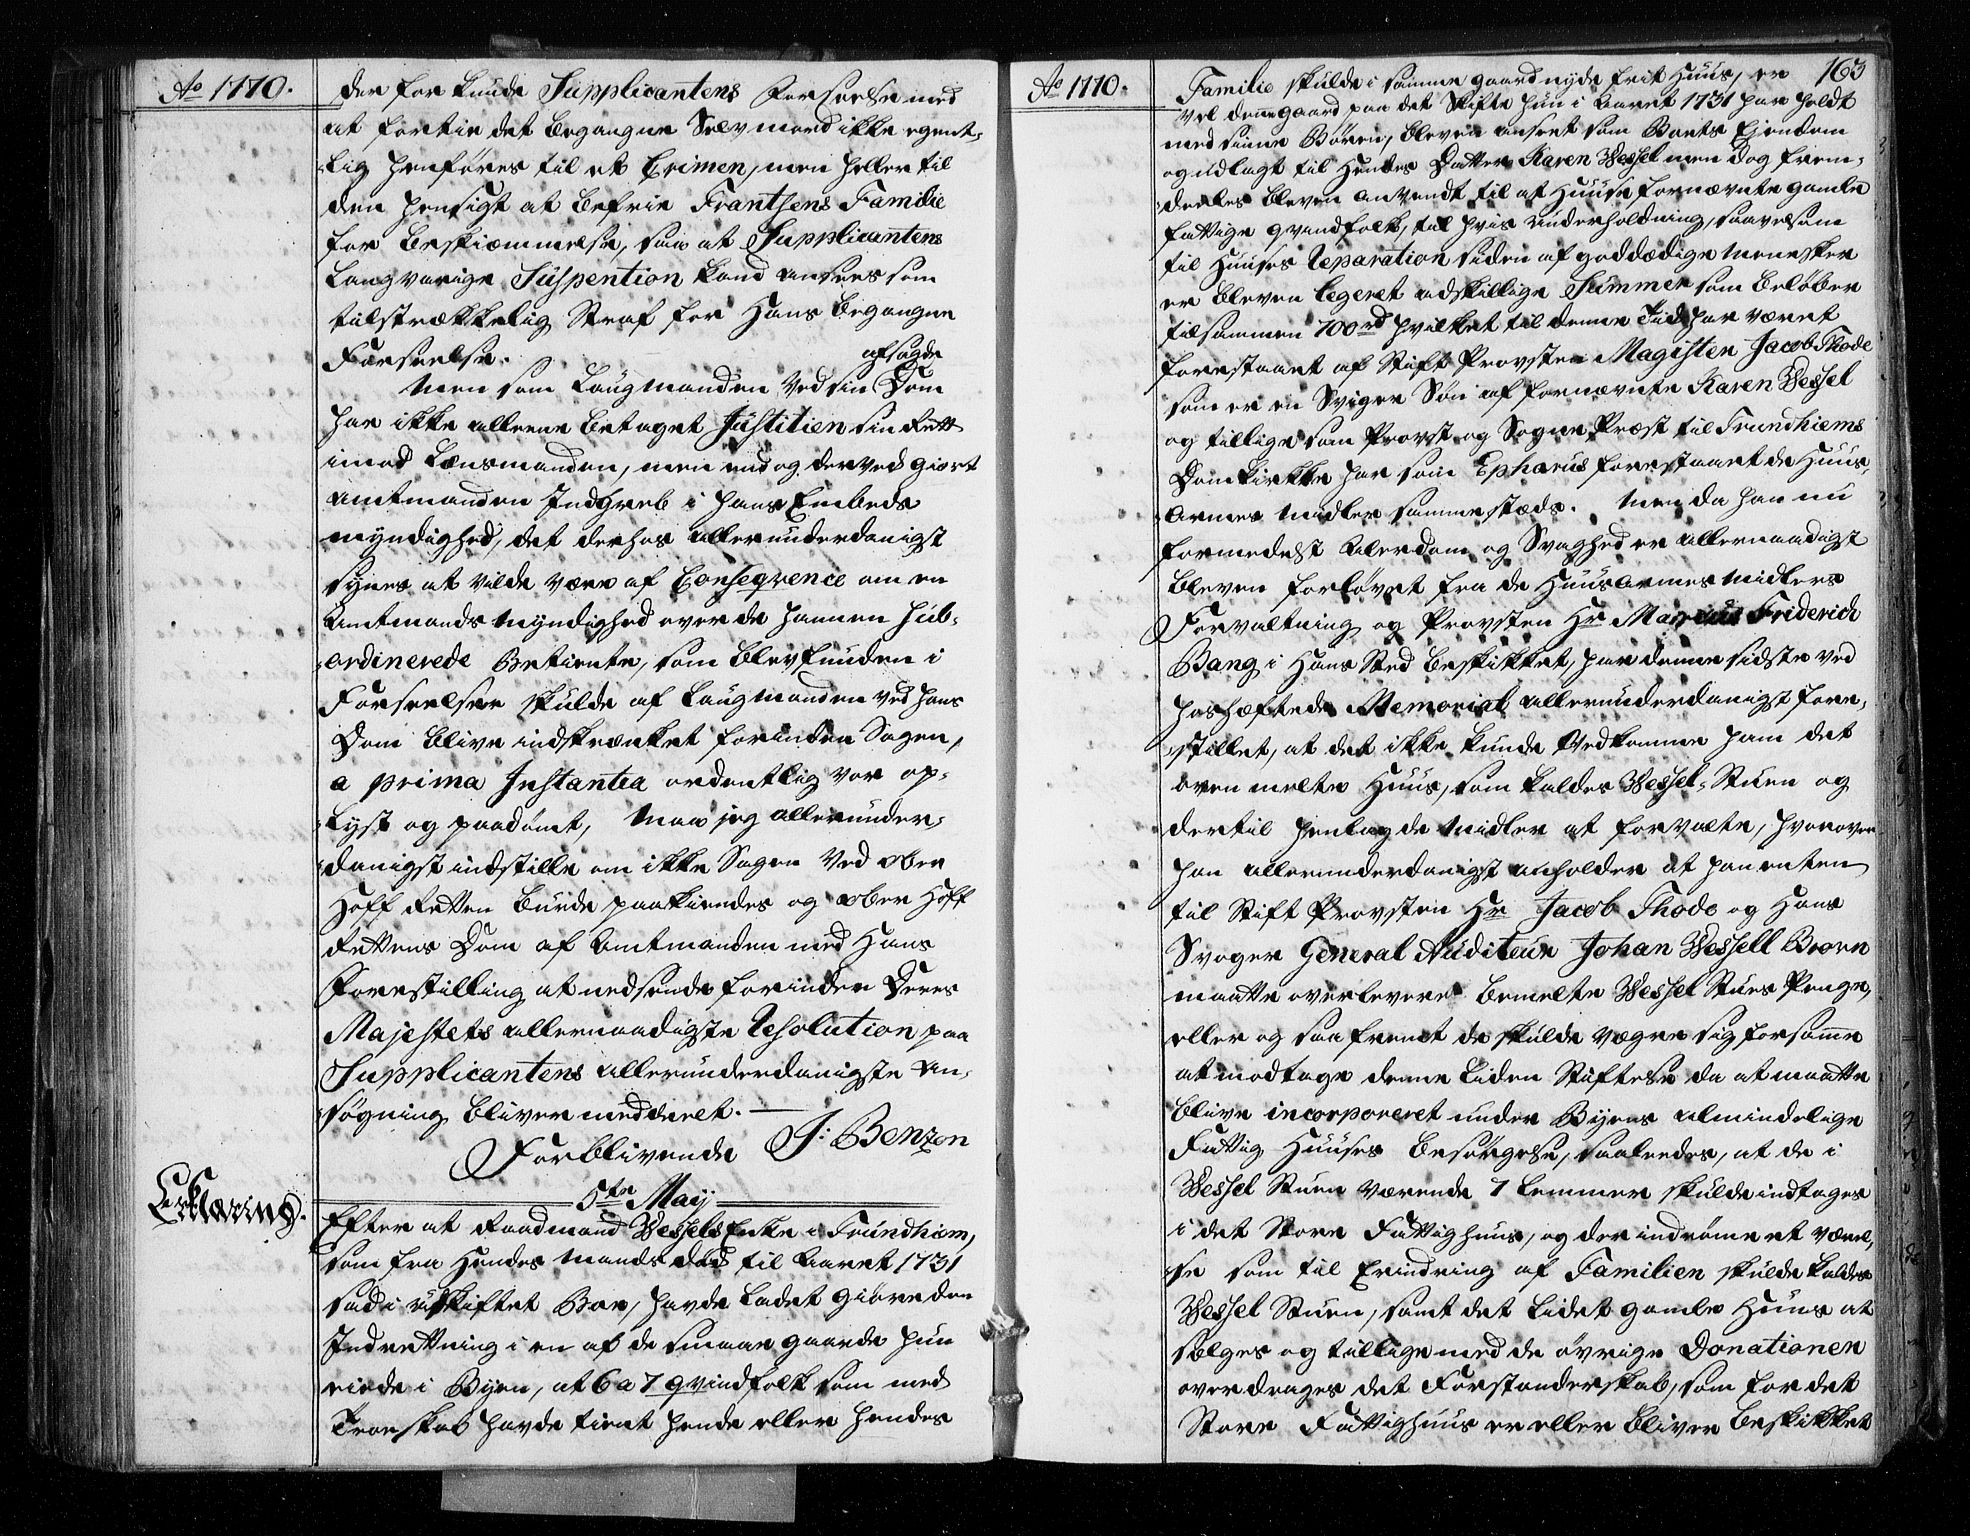 Ao 1770.
der for kunde Supplicantens Forseelse med
at fortie det begangne Selvmord ikke egent-
lig henføres til et Crimen, men heller til
den hensigt at befrie Frantsens Familie
for beskiæmmelse, saa at Supplicantens
langvarige Suspention kand ansees som
tilstrækkelig Straf for Hans begangne
Forseelse.
Men som Laugmanden ved sin afsagde Dom
har ikke alleene betaget Justitien sin Rett
imod Lænsmanden, men end og derved giort
Amtmanden Indgreb i hans Embeds
myndighed, det derhos allerunderdanigst
synes at vilde være af Conseqvence om en
Amtmands Myndighed over de hannem sub-
ordinerede Betiente, som blev funden i
Forseelser skulde af Laugmanden ved hans
Dom blive indskrænket forinden Sagen,
a prima Instantia ordentlig var op-
lyst og paadømt, Maa jeg allerunder-
danigst indstille om ikke Sagen ved Ober
Hoff Retten burde paakiendes og Ober Hoff
Rettens Dom af Amtmanden med Hans
Forestilling at nedsende forinden Deres
Majestets allernaadigste Resolution paa
Supplicantens allerunderdanigste An-
søgning bliver meddeelt.
Forblivende J: Benzon
5te May
Erklæring.
Efter at Raadmand Wessels Enke i Trundhiem,
som fra Hendes Mands død til Aaret 1731
sad i uskiftet Boe, havde ladet giøre den
Indretning i en af de smaae gaarde hun
eiede i Byen, at 6 a 7 qvindfolk som med
Troeskab havde tient hende eller hendes
Ao 1770.
163
Familie skulde i samme gaard nyde frit Huus, er
vel denne gaard paa det Skifte hun i Aaret 1731 har holdt
med sinne Børen, bleven anseet som Boets Ejendom
og udlagt til Hendes Datter Karen Wessel men dog frem-
deeles bleven anvendt til at Huuse fornævnte gamle
fattige qvindfolk, til hvis underholdning, saavelsom
til Huuses Reparation siden af goddædige Mennesker
er bleven legeret adskillige Summer som beløber
tilsammen 700rd hvilket til denne Tid har været
forestaaet af Stift Provsten Magister Jacob Thode
som er en Sviger Søn af fornævnte Karen Wessel
og tillige som Provst og Sogne Præst til Trundhiems
Domkirkke har som Ephorus forestaaet de Huus-
Armes Midler sammestæds. Men da han nu
formedelst Alderdom og Svaghed er allernaadigst
bleven forløvet fra de Huusarmes Midlers
Forvaltning og Provsten Hr Friderich
Bang i Hans Sted beskikket, har denne sidste ved
hoshæftede Memorial allerunderdanigst fore-
stillet, at det ikke kunde vedkomme ham det
oven melte Huus, som kaldes Wessel-Stuen og
dertil henlagde Midler at forvalte, hvorover
han allerunderdanigst anholder at han enten
til Stift Provsten Hr Jacob Thode og Hans
Svoger General Auditeur Johan Wessell Broen
maatte overlevere bemelte Wessel Stues Penge,
eller og saafremt de skulde vægre sig for samme
at modtage denne liden Stiftelse da at maatte
blive incorporeret under Byens almindelige
Fattig Huuses besørgelse, saaleedes, at de i
Wessel Stuen værende 7 Lemmer skulde indtages
i det Store Fattighuus, og der indrømme et værel-
se som til Erindring af Familien skulde kaldes
Wessel Stuen, samt det lidet gamle Huus at
sælges og tillige med de øvrige Donationer
overdrages det Forstanderskab, som for det
Store Fattighuus er eller bliver beskikket